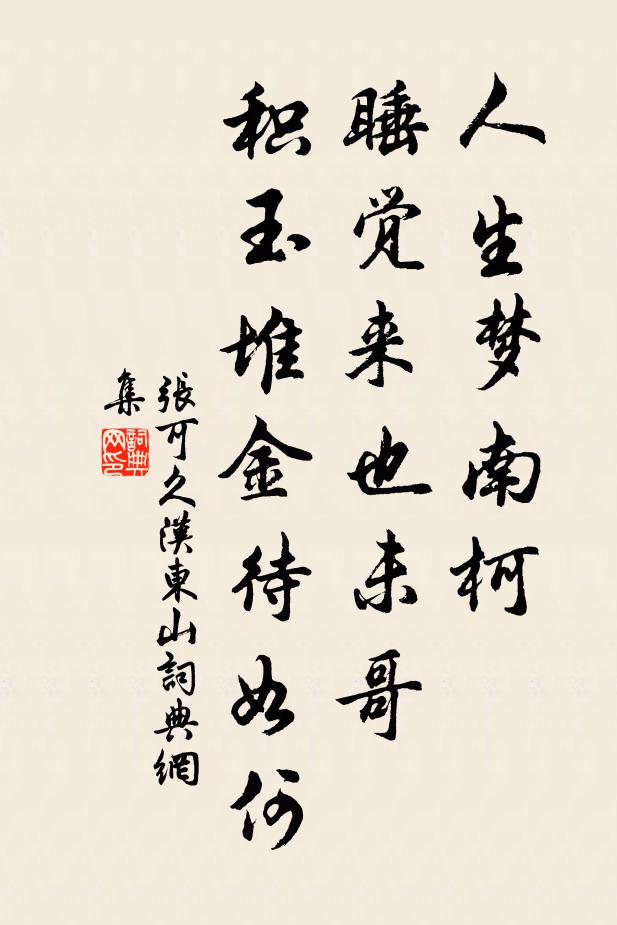 人生梦南柯
睡觉来也未哥
积玉堆金待如何
張可久漢東山詞典網
集
詞典
网印